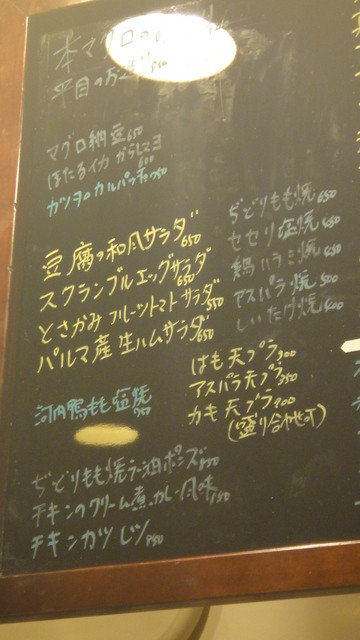 本マグロの
平目の
マグロ納豆 650
ほたるイカ からしマヨ 600
カツオのカルパッチョ 750
豆腐の和風サラダ 650
スクランブルエッグサラダ 650
とさかみ フルーツトマトサラダ 650
パルマ産 生ハムサラダ 650
河内鴨もも塩焼
ぢどりもも焼ラー油ポン酢 850
チキンのクリーム煮 カレー風味
チキンカツレツ
ぢどりもも焼 650
セセリ塩焼
鶏ハラミ焼
アスパラ焼 500
しいたけ焼 400
はも天プラ 900
アスパラ天プラ
カキ天プラ 900
(盛り合せ可)